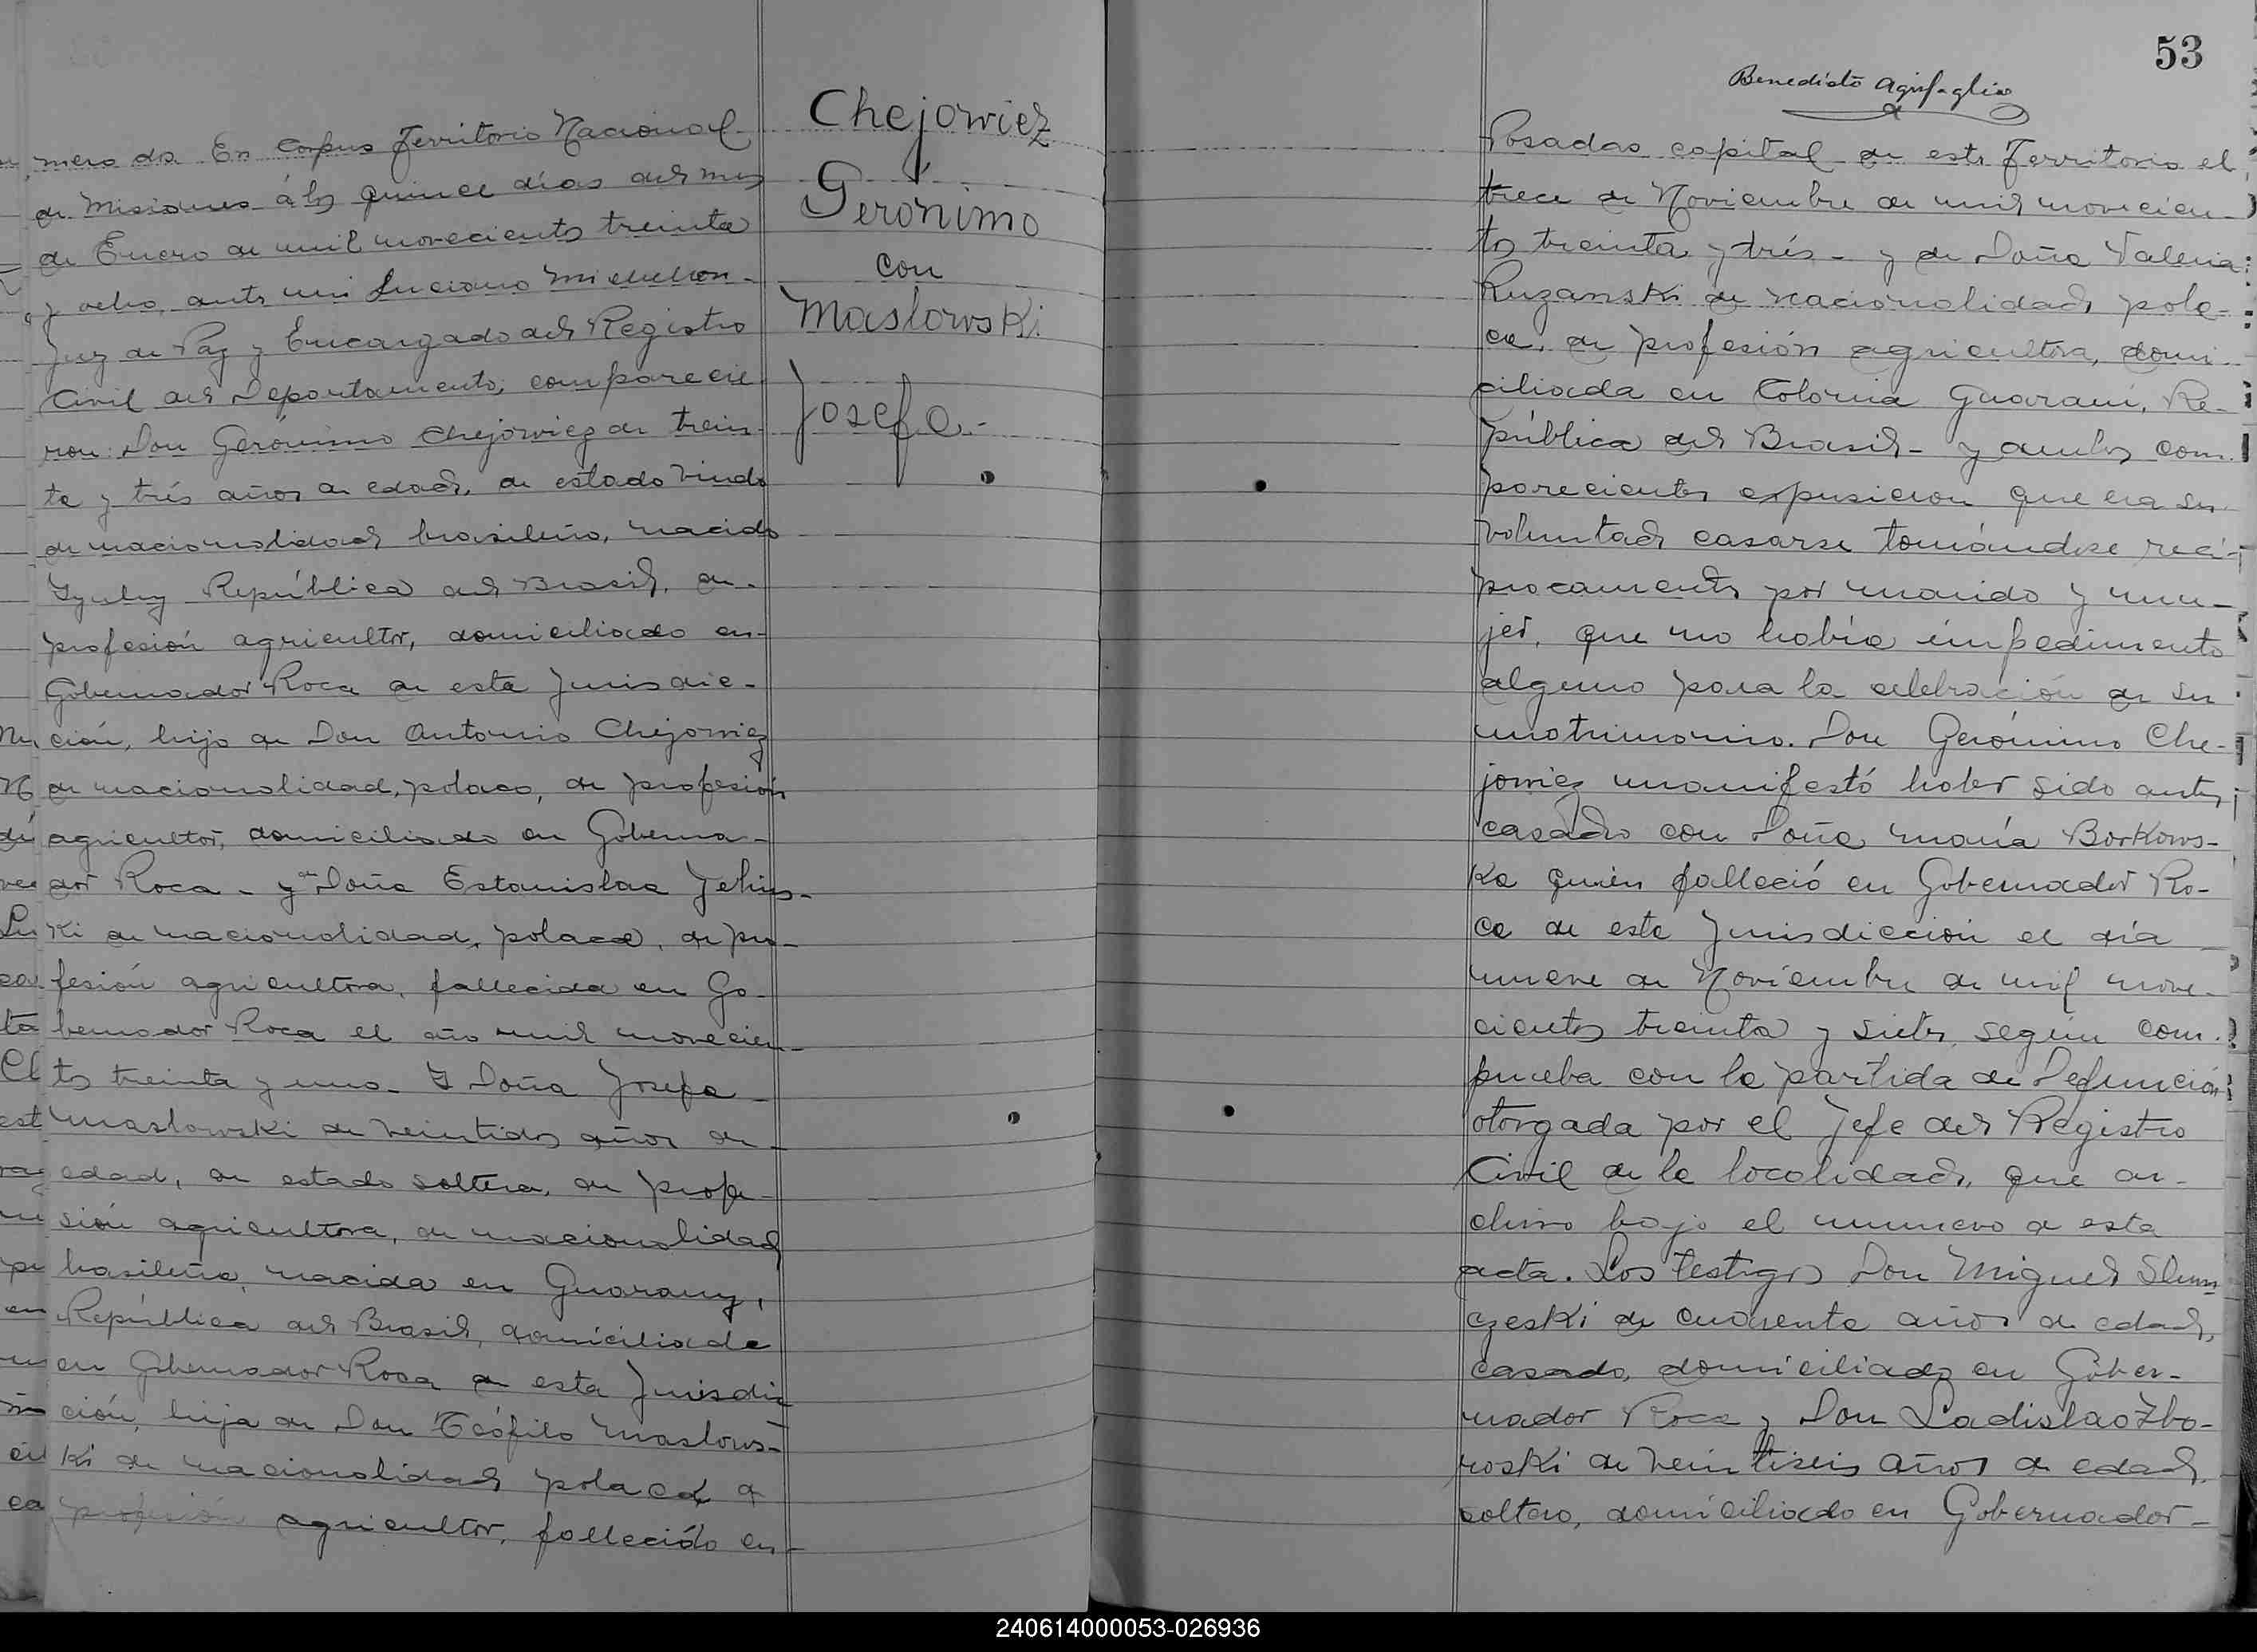 mero dos En Corpus Territorio Nacional
de Misiones á los quince dias del mes
de Enero de mil novecientos treinta
y ocho, ante mi Luciano Michelson
Juez de Paz y Encargado del Registro
Civil del Departamento, comparecie
ron: Don Gerónimo Chejowiez de trein-
ta y trés años de edad, de estado viudo
de nacionalidad brasileño, nacido
Iyuhy República del Brasil, de
profesión agricultor, domiciliado en
Gobernador Roca de esta Jurisdic-
ción, hijo de Don Antonio Chejowiez
de nacionalidad, polaco, de profesión
agricultor, domiciliado en Goberna-
dor Roca - y de Doña Estanislaa Jelins-
ki de nacionalidad, polaca, de pro-
fesión agricultora, fallecida en Go-
bernador Roca el año mil novecien-
tos treinta y uno - Y Doña Josefa
Maslowski de veintidos años de
edad, de estado soltera, de profe-
sión agricultora, de nacionalidad
brasileña, nacida en Guarany,
República del Brasil, domiciliada
en Gobernador Roca de esta Jurisdic
ción, hija de Don Teófilo Maslows-
ki de nacionalidad polaca de
profesión agricultor, fallecido en
Chejowiez
Gerónimo
con
Maslowski
Josefa.-
53
Benedicto
Posadas capital de este Territorio el
trece de Noviembre de mil novecien-
tos treinta y trés - y de Doña Valeria
Ruzanski de nacionalidad pola-
ca, de profesión agricultora, domi-
ciliada en Colonia Guaraní, Re-
pública del Brasil - y ambos com-
parecientes expusieron que era su
voluntad casarse tomándose reci-
procamente por marido y mu-
jer, que no había impedimento
alguno para la celebración de su
matrimonio. Don Gerónimo Che-
jowiez manifestó haber sido antes
casado con Doña María Borkows-
ka quién falleció en Gobernador Ro-
ca de esta Jurisdicción el día
nueve de Noviembre de mil nove-
cientos treinta y siete, según com-
prueba con la partida de Defunción
otorgada por el Jefe del Registro
Civil de la localidad, que ar-
chivo bajo el numero de esta
acta. Los testigos Don Miguel Slum
czeski de cuarenta años de edad,
casado, domiciliado en Gober-
nador Roca y Don Ladislao Zbo-
roski de veintiseis años de edad,
soltero, domiciliado en Gobernador-
240614000053-026936